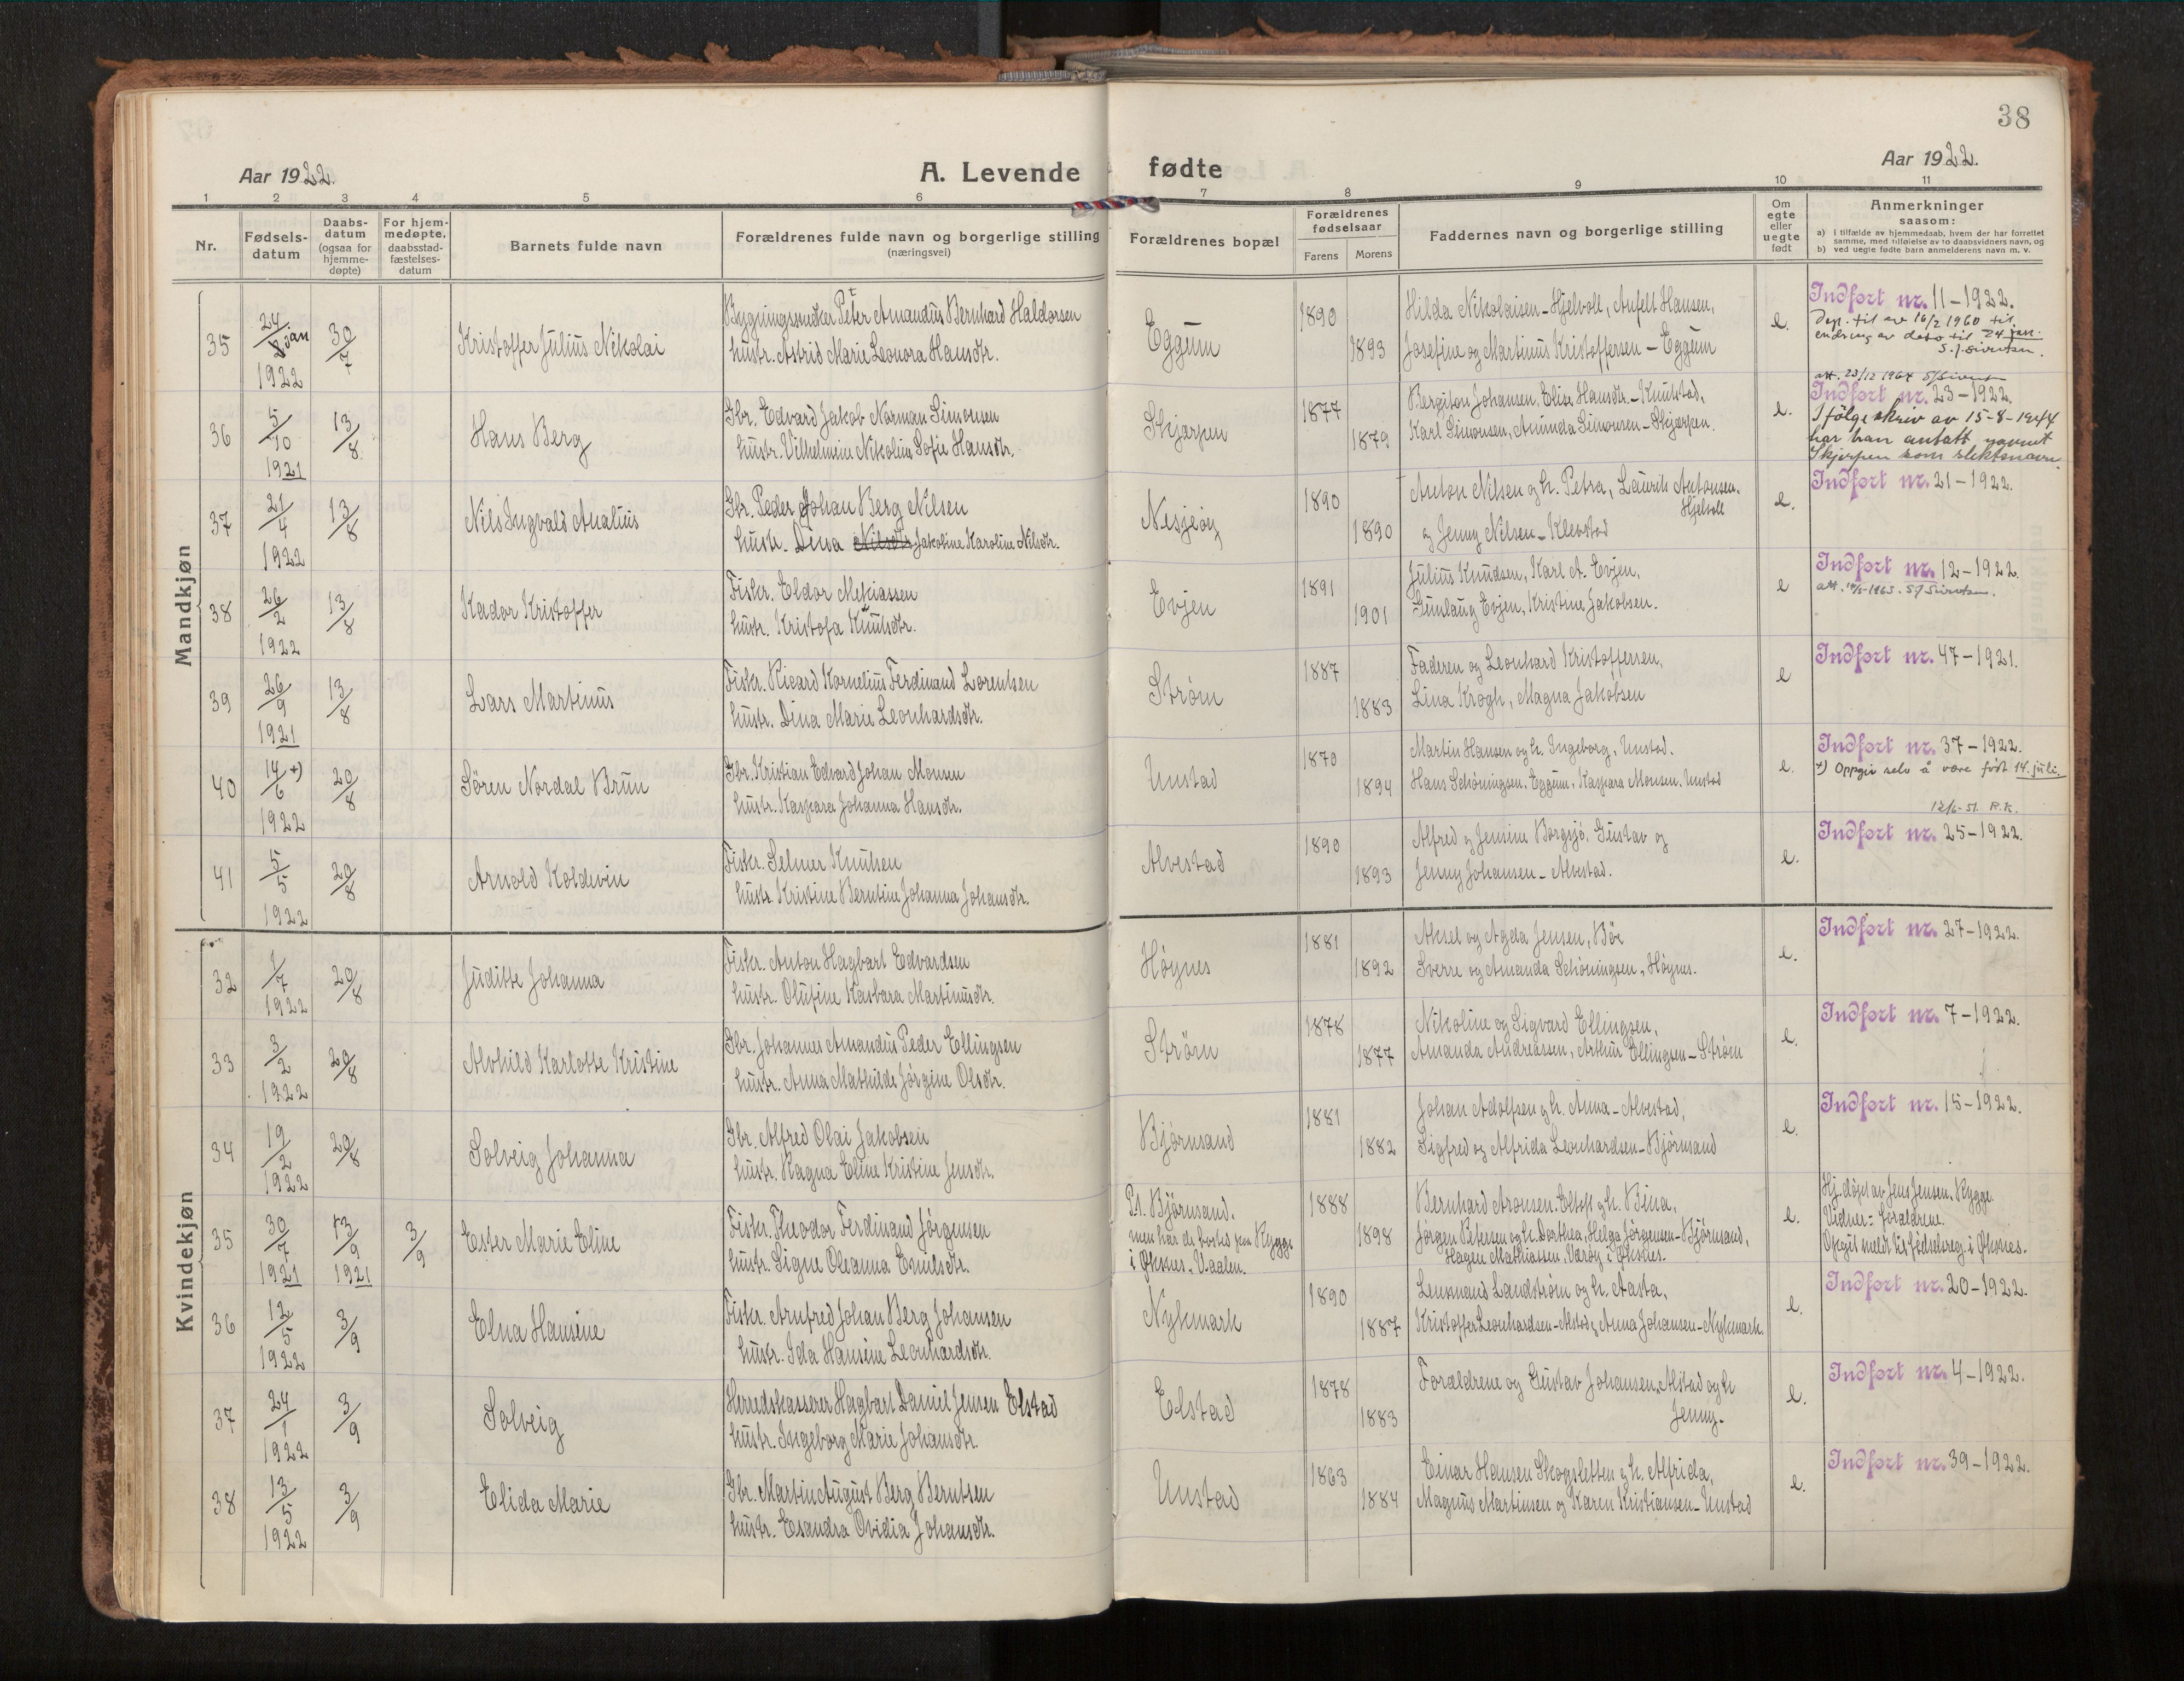 38
Aar 1922.
A. Levende fødte
Aar 1922.
1 2 3 4 5 6 7 8 9 10 11
Nr.
Fødsels-
datum
Daabs-
datum
(ogsaa for
hjemme-
døpte)
For hjem-
medøpte,
daabsstad-
fæstelses-
datum
Barnets fulde navn
Forældrenes fulde navn og borgerlige stilling
(næringsvei)
Forældrenes bopæl
Forældrenes
fødselsaar
Farens Morens
Faddernes navn og borgerlige stilling
Om
egte
eller
uegte
født
Anmerkninger
saasom:
a) i tilfælde av hjemmedaab, hvem der har forrettet
samme, med tilføielse av to daabsvidners navn, og
b) ved uegte fødte barn anmelderens navn m. v.
Mandkjøn
35 24/jan 1922 30/7 Kristoffer Julius Nikolai
Peter Amandus Bernhard Haldorsen
hustr. Astrid Marie Leonora Hansdtr.
Eggum 1890 1893
Hilda Nikolaisen - Hjelvoll, Anfelt Hansen,
Josefine og Martinus Kristoffersen - Eggum
e.
Indført nr. 11-1922.
Dep. til av 16/2 1960 til
endring av dato til 24 jan.
S. J. Sivertsen.
att. 23/12 1964
36 5/10 1921 13/8 Hans Berg
Gbr. Edvard Jakob Norman Simonsen
hustr. Vilhelmine Nikoline Sofie Hansdtr.
Skjerpen 1877 1879
Bergiton Johansen, Elise Hansdtr. - Knutstad,
Karl Simonsen, Aminda Simonsen - Skjerpen.
e.
Indført nr. 23-1922.
Ifölge skriv av 15-8-1944
har han antatt navnet
Skjerpen som slektsnavn.
37 21/4 1922 13/8 Nils Ingvald Analius
Gbr. Peder Johan Berg Nilsen
hustr. Dina Nilsdtr Jakoline Karoline Nilsdtr.
Nesjeöy 1890 1890
Anton Nilsen og h. Petra, Laurits Antonsen,
Hjelvoll
og Jenny Nilsen - Klevstad
e.
Indført nr. 21-1922.
38 26/2 1922 13/8 Kador Kristoffer
Fiskr. Eldor Mekiassen
hustr. Kristofa Knutsdtr.
Evjen 1891 1901
Julius Knudsen, Karl A. Evjen,
Gunlaug Evjen, Kristine Jakobsen.
e
Indført nr. 12-1922.
39 26/9 1921 13/8 Lars Martinus
Fiskr. Ricard Kornelius Ferdinand Lorentsen
hustr. Dina Marie Leonhardsdtr.
Strøm 1887 1883
Faderen og Leonhard Kristoffersen,
Lina Krogh, Magna Jakobsen
e
Indført nr. 47-1921.
40 14/6 +) 1922 20/8 Sören Nordal Brun
Gbr. Kristian Edvard Johan Monsen
hustr. Kaspara Johanna Hansdtr.
Unstad 1870 1894
Martin Hansen og h. Ingeborg, Unstad.
Hans Schöningsen, Eggum, Kaspara Monsen, Unstad
e.
Indført nr. 37-1922.
+) Oppgir selv å være født 14. juli.
12/6-51. R.K.
41 5/5 1922 20/8 Arnold Koldevin
Fiskr. Selmer Knutsen
hustr. Kristine Berntine Johanna Johansdtr.
Alvestad 1890 1893
Alfred og Jensine Borgsjö, Gustav og
Jenny Johansen - Alvestad.
e.
Indført nr. 25-1922.
Kvindekjøn
32 1/7 1922 20/8 Juditte Johanna
Fiskr. Anton Hagbart Edvardsen
hustr. Olufine Kasbara Martinusdtr.
Höynes 1881 1892
Aksel og Agda Jensen, Böe
Sverre og Amanda Schöningsen, Höynes.
e.
Indført nr. 27-1922.
33 3/2 1922 20/8 Alvhild Karlotte Kristine
Gbr. Johannes Amandus Peder Ellingsen
hustr. Anna Mathilde Jörgine Olsdtr.
Strøm 1878 1877
Nikoline og Sigvard Ellingsen,
Amanda Andreassen, Arthur Ellingsen - Ström
e.
Indført nr. 7-1922.
34 19/2 1922 20/8 Solveig Johanna
Gbr. Alfred Olai Jakobsen
hustr. Ragna Eline Kristine Jensdtr.
Bjørnsand 1881 1882
Johan Adolfsen og h. Anna - Alvestad,
Sigfred og Alfrida Leonhardsen - Bjørnsand
e.
Indført nr. 15-1922.
35 30/7 1921 13/9 1921 3/9 Ester Marie Eline
Fiskr. Theodor Ferdinand Jörgensen
hustr. Signe Oleanna Emilsdtr.
Pt. Bjørnsand,
men har de bosted paa Rygge
i Øksnes, V.aalen.
1888 1898
Bernhard Aronsen, Eltoft og h. Bina,
Jörgen Petersen og h. Dorthea, Helga Jörgensen - Bjørnsand,
Hagen Mathiassen, Værøy i Øksnes.
e.
Hj. döpt av Jens Jensen, Rygge.
Vidner: foreldrene.
Opgit meldt til fødselsreg. i Øksnes.
36 12/5 1922 3/9 Elna Hansine
Fiskr. Arnfred Johan Berg Johansen
hustr. Ida Hansine Leonhardsdtr.
Nykmark 1890 1887
Lennand Landström og h. Aasta,
Kristoffer Leonhardsen - Alstad og Anna Johansen - Nykmark.
e.
Indført nr. 20-1922.
37 24/1 1922 3/9 Solveig
Herredskasserer Hagbart Daniel Jensen Elstad
hustr. Ingeborg Marie Johansdtr.
Elstad 1878 1883
Foreldrene og Gustav Johansen, Alstad og h
Jenny.
e.
Indført nr. 4-1922.
38 13/5 1922 3/9 Elida Marie
Gbr. Martin August Berg Berntsen
hustr. Esandra Ovidia Johansdtr.
Unstad 1863 1884
Einar Hansen Skogsletten og h. Alfrida,
Magnus Martinsen og Karen Kristiansen - Unstad
e.
Indført nr. 39-1922.